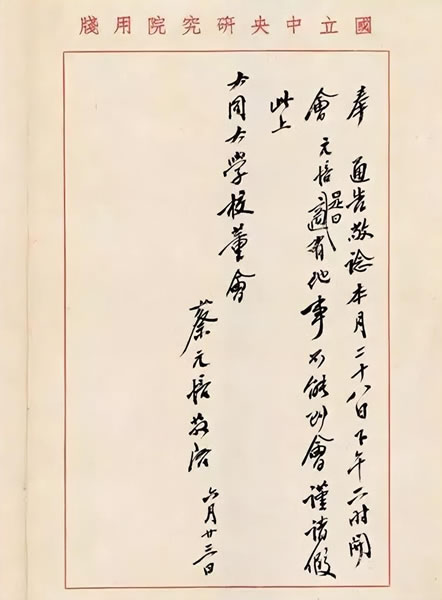 國立中央研究院用牋
奉 通告敬諗本月二十八日下午二時開
會 元培是日適有他事不能到會謹請假
此上
大同大學校董會
蔡元培敬啓 六月廿三日